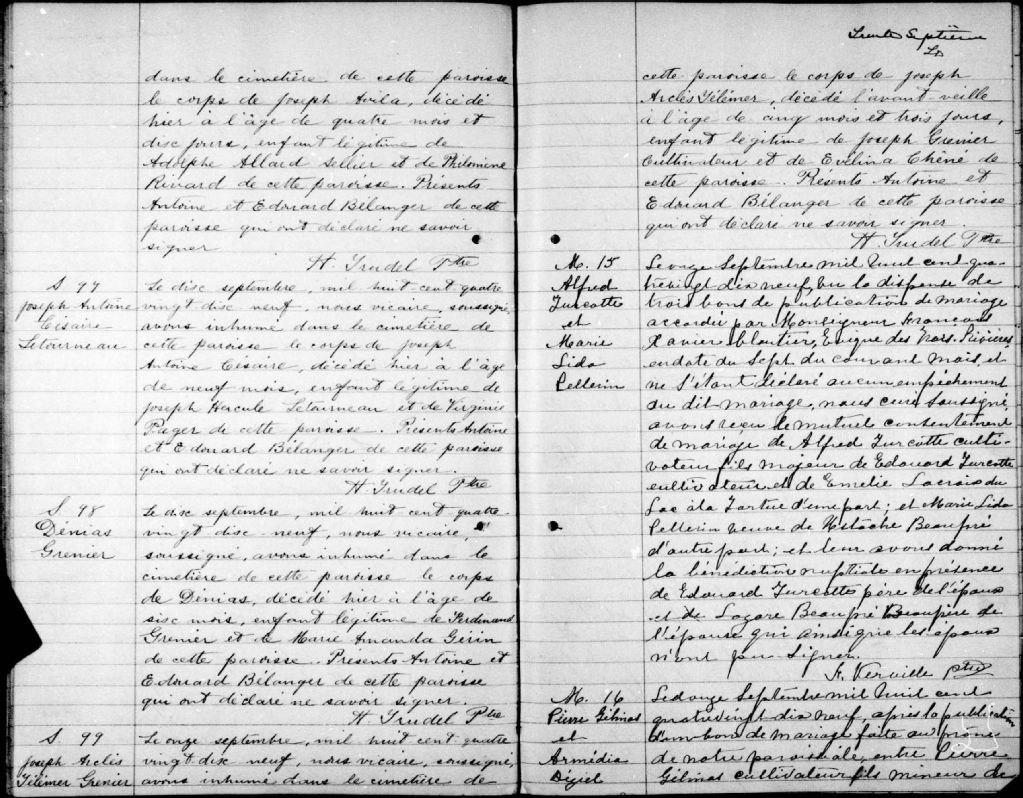 dans le cimetière de cette paroisse
le corps de Joseph Avila, décédé
hier à l'âge de quatre mois et
disc jours, enfant légitime de
Adolphe Allard sellier et de Philomène
Rivard de cette paroisse. Présents
Antoine et Edouard Bélanger de cette
paroisse qui ont déclaré ne savoir
signer
H. Trudel Ptre
S. 97
Joseph Antoine
Césaire
Letourneau
Le disc septembre, mil huit cent quatre
vingt disc neuf, nous vicaire, soussigné,
avons inhumé dans le cimetière de
cette paroisse le corps de Joseph
Antoine Césaire, décédé hier à l'âge
de neuf mois, enfant légitime de
Joseph Hercule Letourneau et de Virginie
Pager de cette paroisse. Présents Antoine
et Edouard Bélanger de cette paroisse
qui ont déclaré ne savoir signer.
H. Trudel Ptre
S. 98
Dénias
Grenier
Le disc septembre, mil huit cent quatre-
vingt disc-neuf, nous vicaire,
soussigné, avons inhumé dans le
cimetière de cette paroisse le corps
de Dénias, décédé hier à l'âge de
sisc mois, enfant légitime de Ferdinand
Grenier et de Marie Amanda Gérin
de cette paroisse. Présents Antoine et
Edouard Bélanger de cette paroisse
qui ont déclaré ne savoir signer.
H. Trudel Ptre
S. 99
Joseph Arclès
Télémer Grenier
Le onze septembre, mil huit cent quatre
vingt disc neuf, nous vicaire, soussigné,
avons inhumé dans le cimetière de
Trente Septième
cette paroisse le corps de Joseph
Arclès Télémer, décédé l'avant-veille
à l'âge de cinq mois et trois jours,
enfant légitime de Joseph Grenier
cultivateur et de Evelina Chêne de
cette paroisse. Présents Antoine et
Edouard Bélanger de cette paroisse
qui ont déclaré ne savoir signer
H. Trudel Ptre
M. 15
Alfred
Turcotte
et
Marie
Lida
Pellerin
Le onze Septembre mil huit cent qua-
trevingt dix neuf, vu la dispense de
trois bans de publication de mariage
accordée par Monseigneur Francois
Xavier Cloutier, Evêque des Trois-Rivières,
en date du Sept du courant mois, et
ne s'étant déclaré aucun empêchement
au dit mariage, nous curé soussigné,
avons reçu le mutuel consentement
de mariage de Alfred Turcotte culti-
vateur fils majeur de Edouard Turcotte
cultivateur et de Emelie Lacroix du
Lac à la Tortue d'une part; et Marie Lida
Pellerin veuve de Nstache Beaupré
d'autre part; et leur avons donné
la bénédiction nuptiale en présence
de Edouard Turcotte père de l'époux
et de Lazare Beaupré Beaupère de
l'épouse qui ainsi que les époux
n'ont pu signer.
H. Verville ptre
M. 16
Pierre Gélinas
et
Armédia
Diziel
Le douze Septembre mil huit cent
quatrevingt dix neuf, après la publication
d'un bans de mariage faite au prône
de notre paroissiale, entre Pierre
Gélinas cultivateur fils mineur de